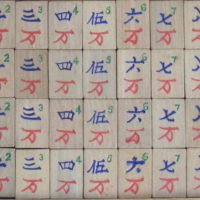 2 三 3 四 4 伍 5 六 6 七 7
万 万 万 万 万
2 三 3 四 4 伍 5 六 6 七 7
万 万 万 万 万
2 三 3 四 4 伍 5 六 6 七 7
万 万 万 万 万
2 三 3 四 4 伍 5 六 6 七 7
万 万 万 万 万